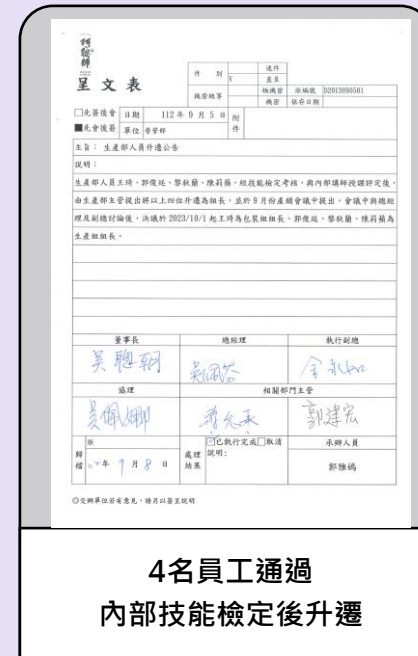 阿聰師
呈文表
件 別 V 速件
直呈
機密等級 極機密 ※編號 D2013090501
機密 保存日期
□先簽後會 日期 112年9月5日 附件
■先會後簽 單位 營管部
主旨：生產部人員升遷公告
說明：
生產部人員王琦、郭俊廷、黎秋蘭、陳莉蘋，經技能檢定考核，與內部講師授課評定後，
由生產部主管提出將以上四位升遷為組長，並於9月份產銷會議中提出，會議中與總經
理及副總討論後，決議於2023/10/1起王琦為包裝組組長、郭俊廷、黎秋蘭、陳莉蘋為
生產組組長。
董事長 總經理 執行副總
吳聰朝 吳佩芬
協理 相關部門主管
吳佩娜 郭建宏
歸檔 ※ 年9月8日 處理結果 已執行完成□取消
說明： 承辦人員
郭雅嫣
◎交辦單位若有意見，請另以簽呈說明
4名員工通過
內部技能檢定後升遷